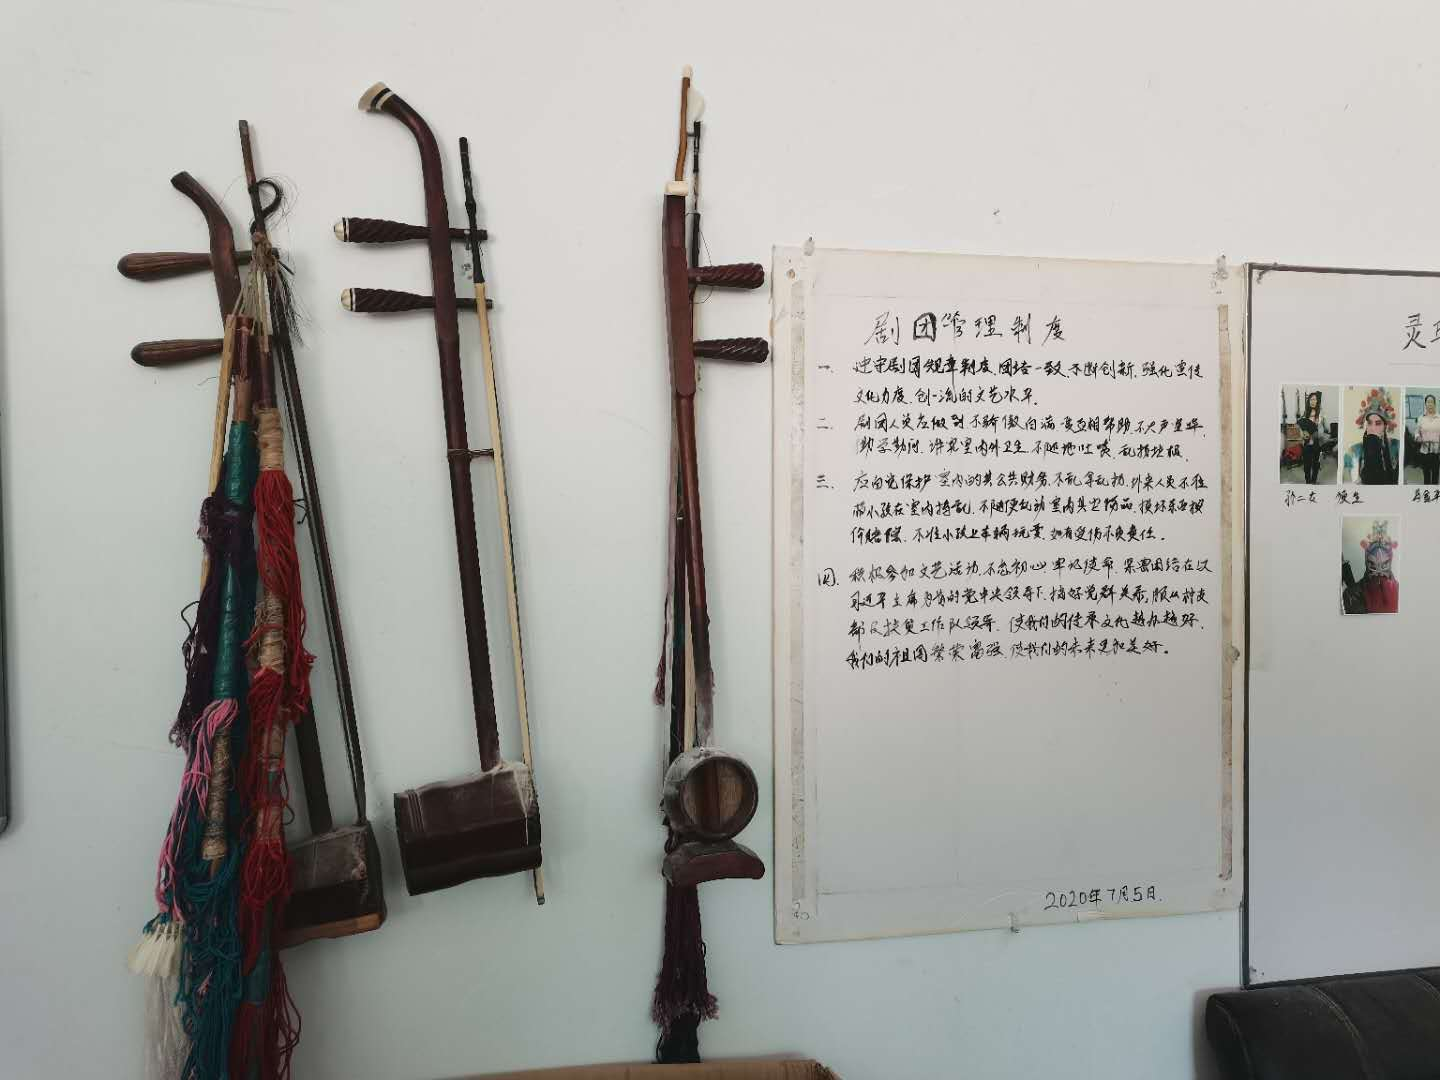 剧团管理制度
一、遵守剧团规章制度、团结一致、不断创新、强化宣传
文化力度、创一流的文艺水平。
二、剧团人员应做到不骄傲自满 要互相帮助、不大声喧哗、
勤学勤问、讲究室内外卫生、不随地吐痰、乱扔垃圾、
三、应自觉保护室内的其公共财务、不乱拿乱扔、外来人员不准
带小孩在室内捣乱、不随便乱动室内其它物品、损坏东西按
价赔偿、不准小孩上车辆玩耍、如有受伤不负责任。
四、积极参加文艺活动、不忘初心牢记使命、紧密团结在以
习近平主席为首的党中央领导下、搞好党群关系、服从村支
部及扶贫工作队领导、使我们的传承文化越办越好、
我们的祖国繁荣富强、使我们的未来更加美好。
2020年7月5日.
灵
孙二女 须生